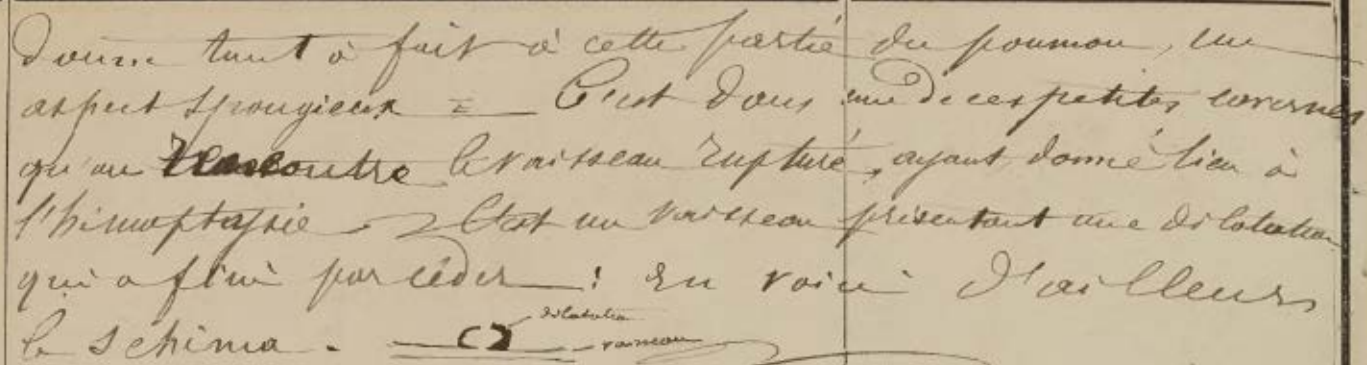 donne tout à fait à cette partie du poumon, un
aspect spongieux = C'est dans une de ces petites cavernes
qu'on rencontre le vaisseau rupturé, ayant donné lieu à
l'hémoptysie – C'est un vaisseau présentant une dilatation
qui a fini par céder ! En voici d'ailleurs
le schéma. dilatation
vaisseau